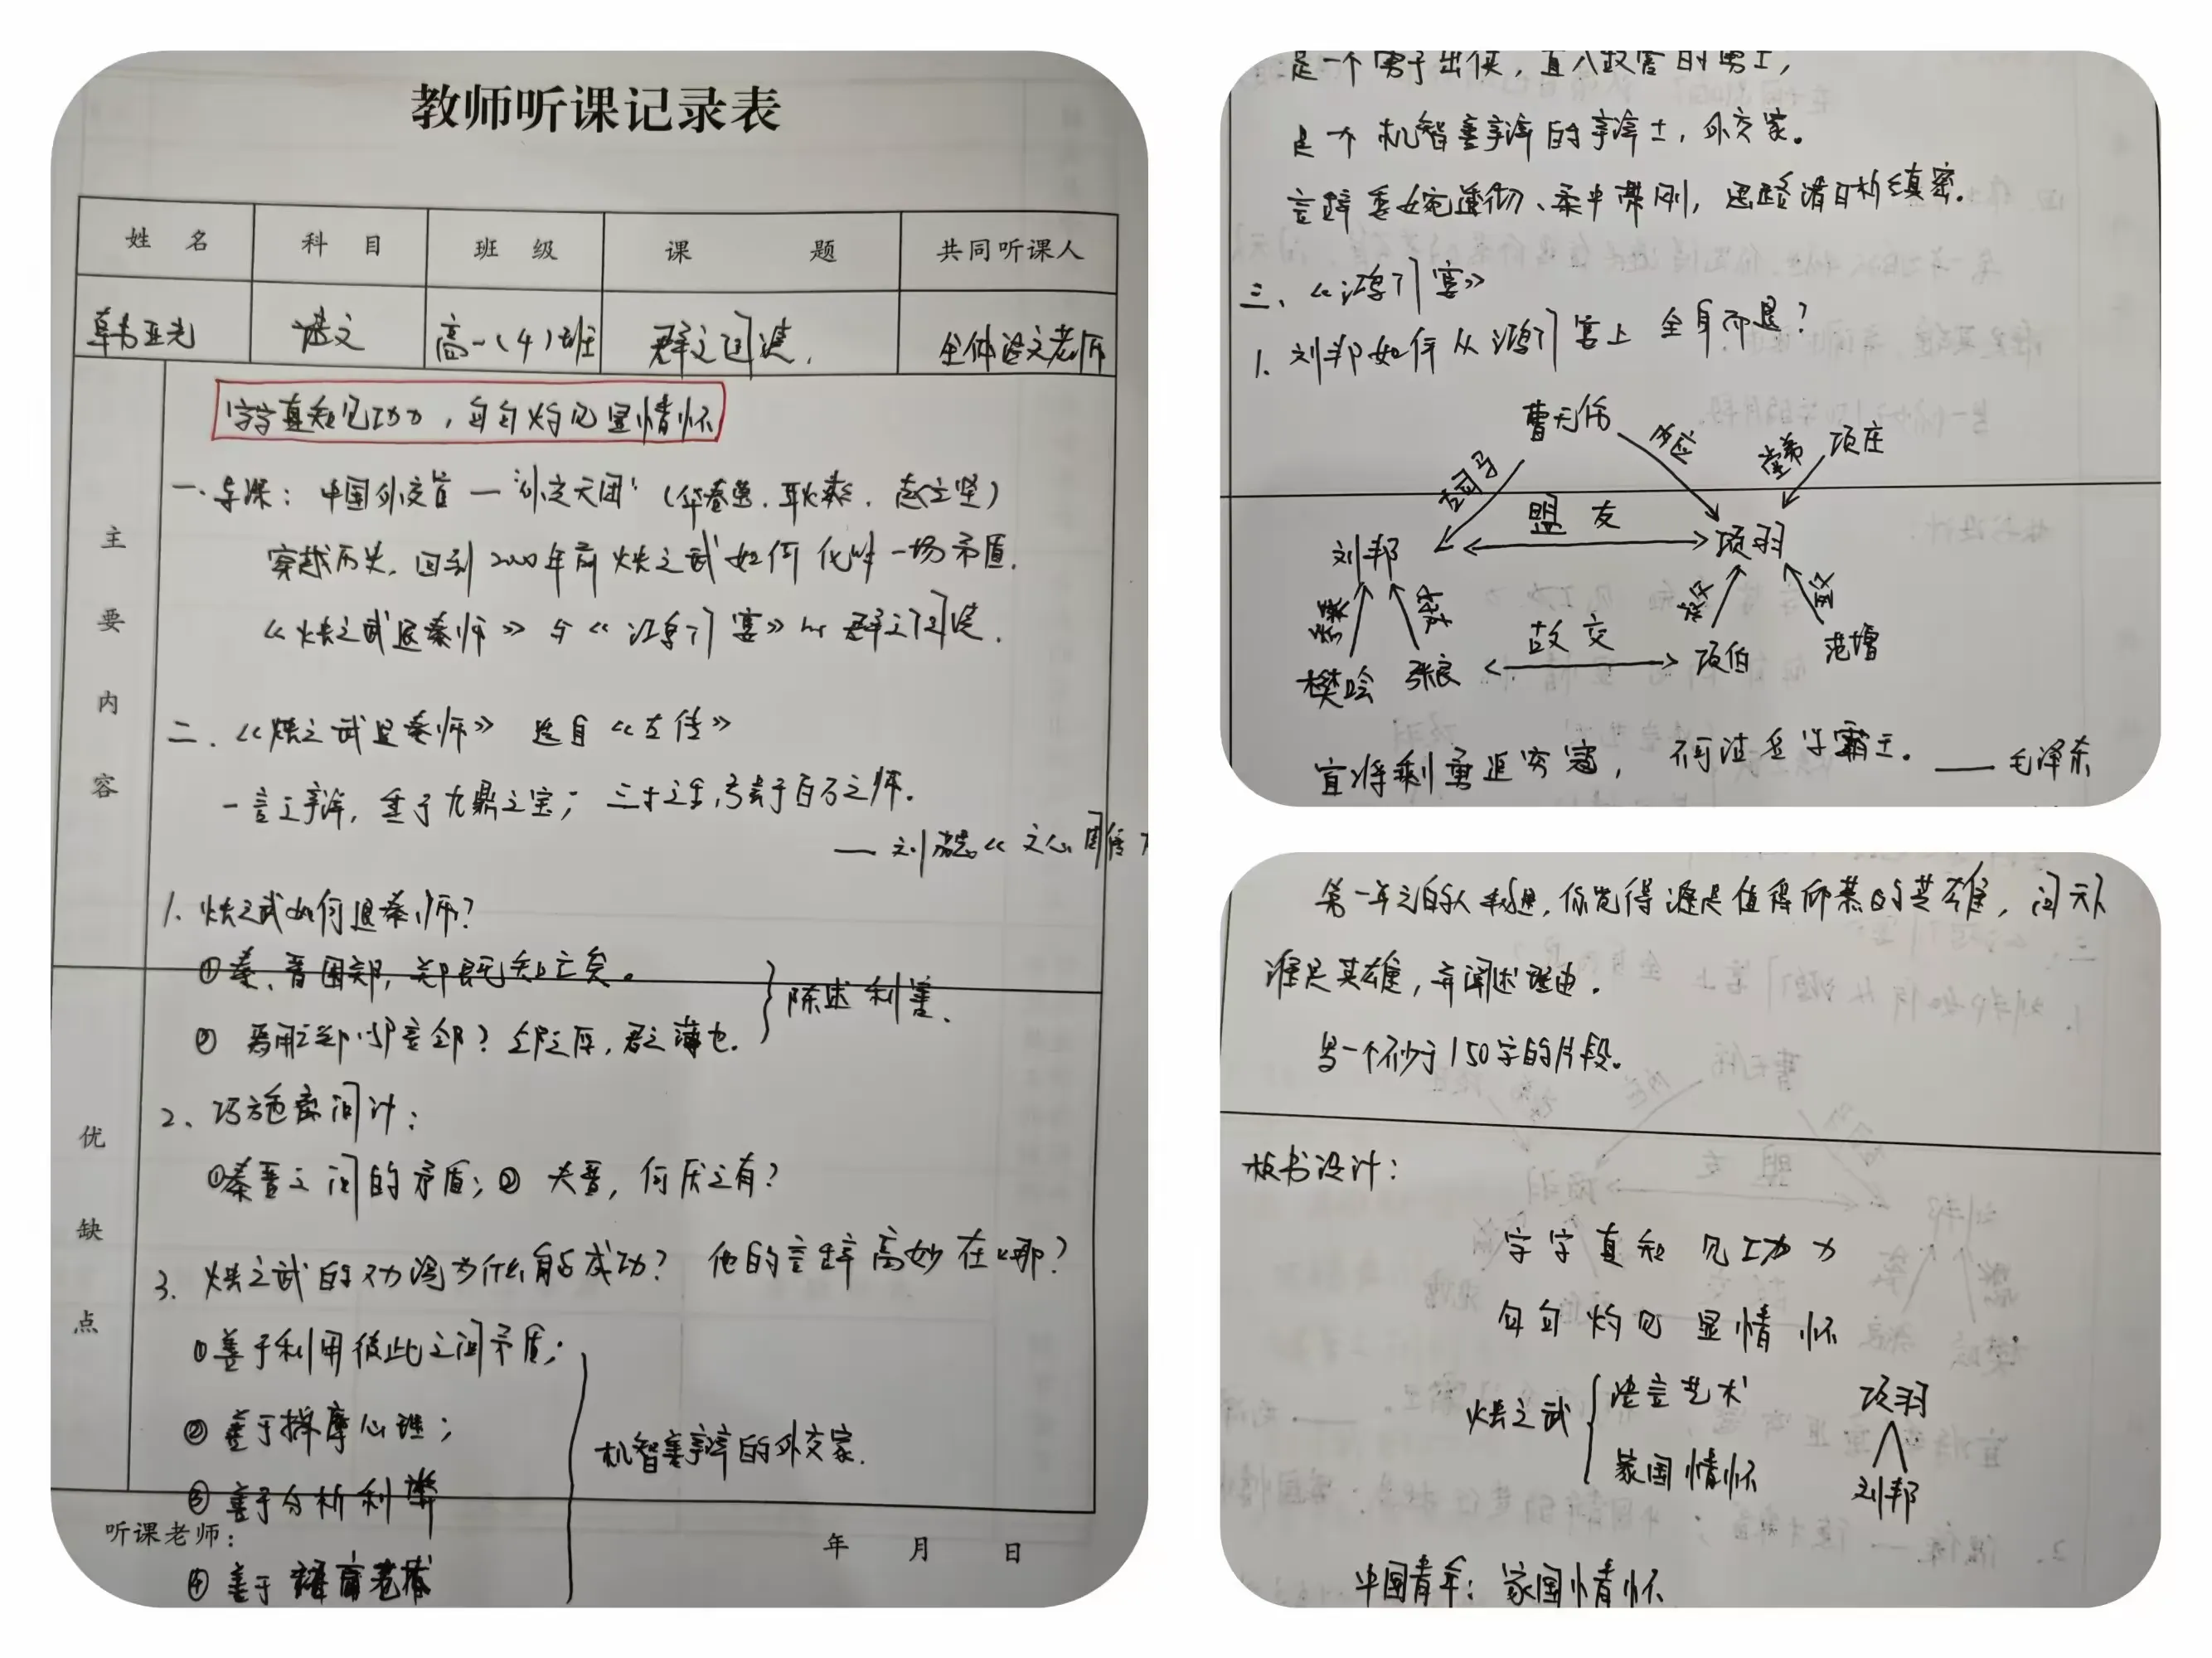 教师听课记录表
姓 名 科 目 班 级 课 题 共同听课人
韩亚光 语文 高一(4)班 群文阅读. 全体语文老师
主要内容
字字真知见功力，句句灼见显情怀
一.导课：中国外交官—"外交天团"（华春莹.耿爽.赵立坚）
穿越历史.回到2000年前烛之武如何化解一场矛盾.
《烛之武退秦师》与《鸿门宴》 群文阅读.
二.《烛之武退秦师》 选自《左传》
一言之辩，重于九鼎之宝；三寸之舌，弓虽于百万之师.
—刘勰《文心
1.烛之武如何退秦师？
①秦、晋围郑，郑既知亡矣。
② 焉用亡郑以陪邻？邻之厚，君之薄也.
陈述利害.
优缺点
2、巧施离间计：
①秦晋之间的矛盾；② 夫晋，何厌之有？
3.烛之武的为什么能成功？他的言辞高妙在哪？
①善于利用彼此之间矛盾；
②善于揣摩心理；
③善于分析利弊
④善于
机智善辩的外交家.
听课老师： 年 月 日
是一个勇于出使，直入敌营的勇士，
是一个机智善辩的辩士，外交家。
言辞委婉透彻、柔中带刚，思路清晰缜密.
三、《鸿门宴》
1.刘邦如何从鸿门宴上全身而退？
曹无伤
左司马 内应 堂弟 项庄
刘邦 盟友 项羽
参乘 叔父 亚父
樊哙 张良 故交 项伯 范增
宜将剩勇追穷寇，不可沽名学霸王.——毛泽东
第一单元的人物，你觉得谁是值得仰慕的英雄，问天下
谁是英雄，并阐述理由.
写一个不少于150字的片段。
板书设计：
字字真知 见功力
句句灼见 显情怀
烛之武 语言艺术 家国情怀
项羽
刘邦
中国青年：家国情怀